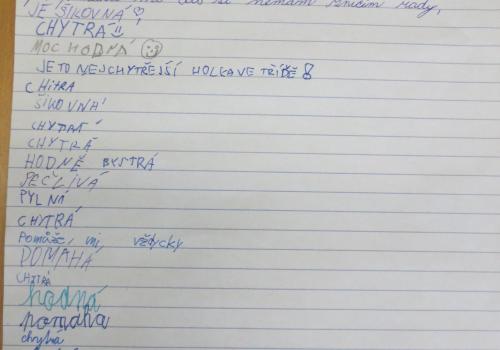 se nemám
JE ŠIKOVNÁ
CHYTRÁ!
MOC HODNÁ
JE TO NEJCHYTŘEJŠÍ HOLKA VE TŘÍDĚ!
CHITRA
ŠIKOVNÁ
CHYTRÁ
CHYTRÁ
HODNĚ BYSTRÁ
PEČLIVÁ
PYLNÁ
CHYTRÁ
Pomůže mi vždycky
POMAHÁ
CHITRÁ
hodná
pomáhá
chytrá